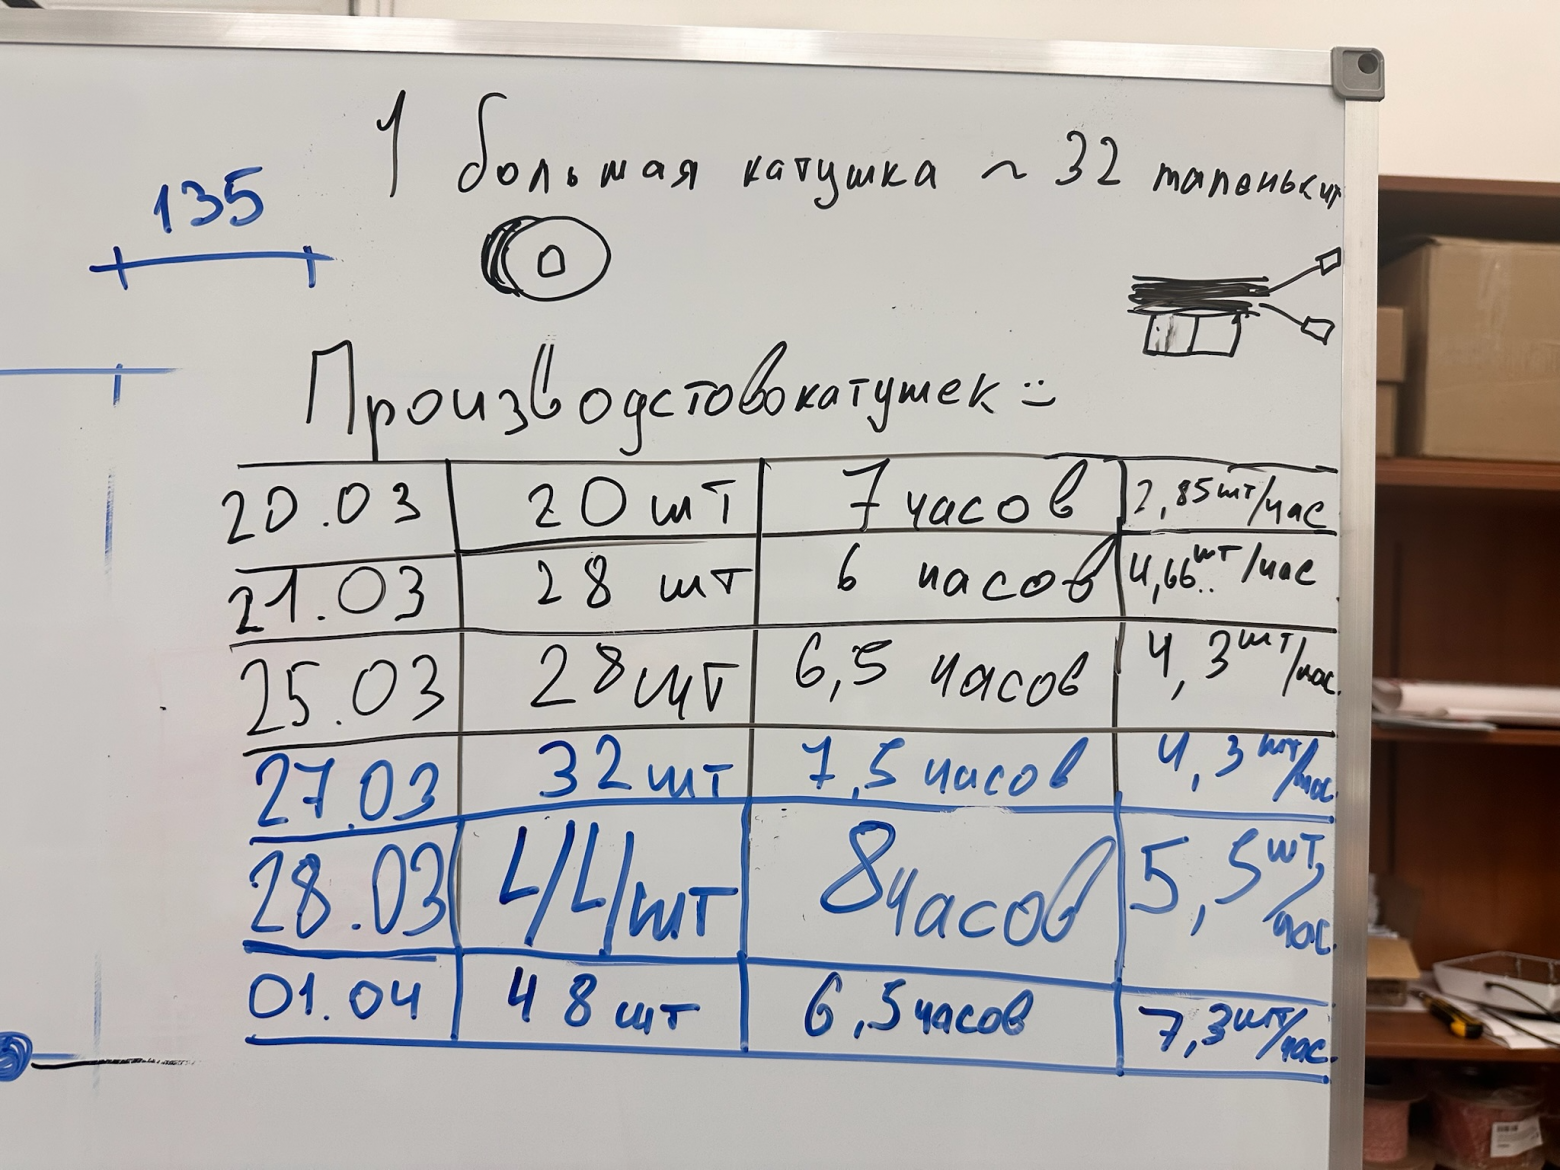 1 большая катушка ~ 32 маленьких
135
Производстово катушек
20.03 20 шт 7 часов 2,85 шт/час
21.03 28 шт 6 часов 4,66.. шт/час
25.03 28 шт 6,5 часов 4,3 шт/час.
27.03 32 шт 7,5 часов 4,3 шт/час.
28.03 44 шт 8 часов 5,5 шт/час.
01.04 48 шт 6,5 часов 7,3 шт/час.